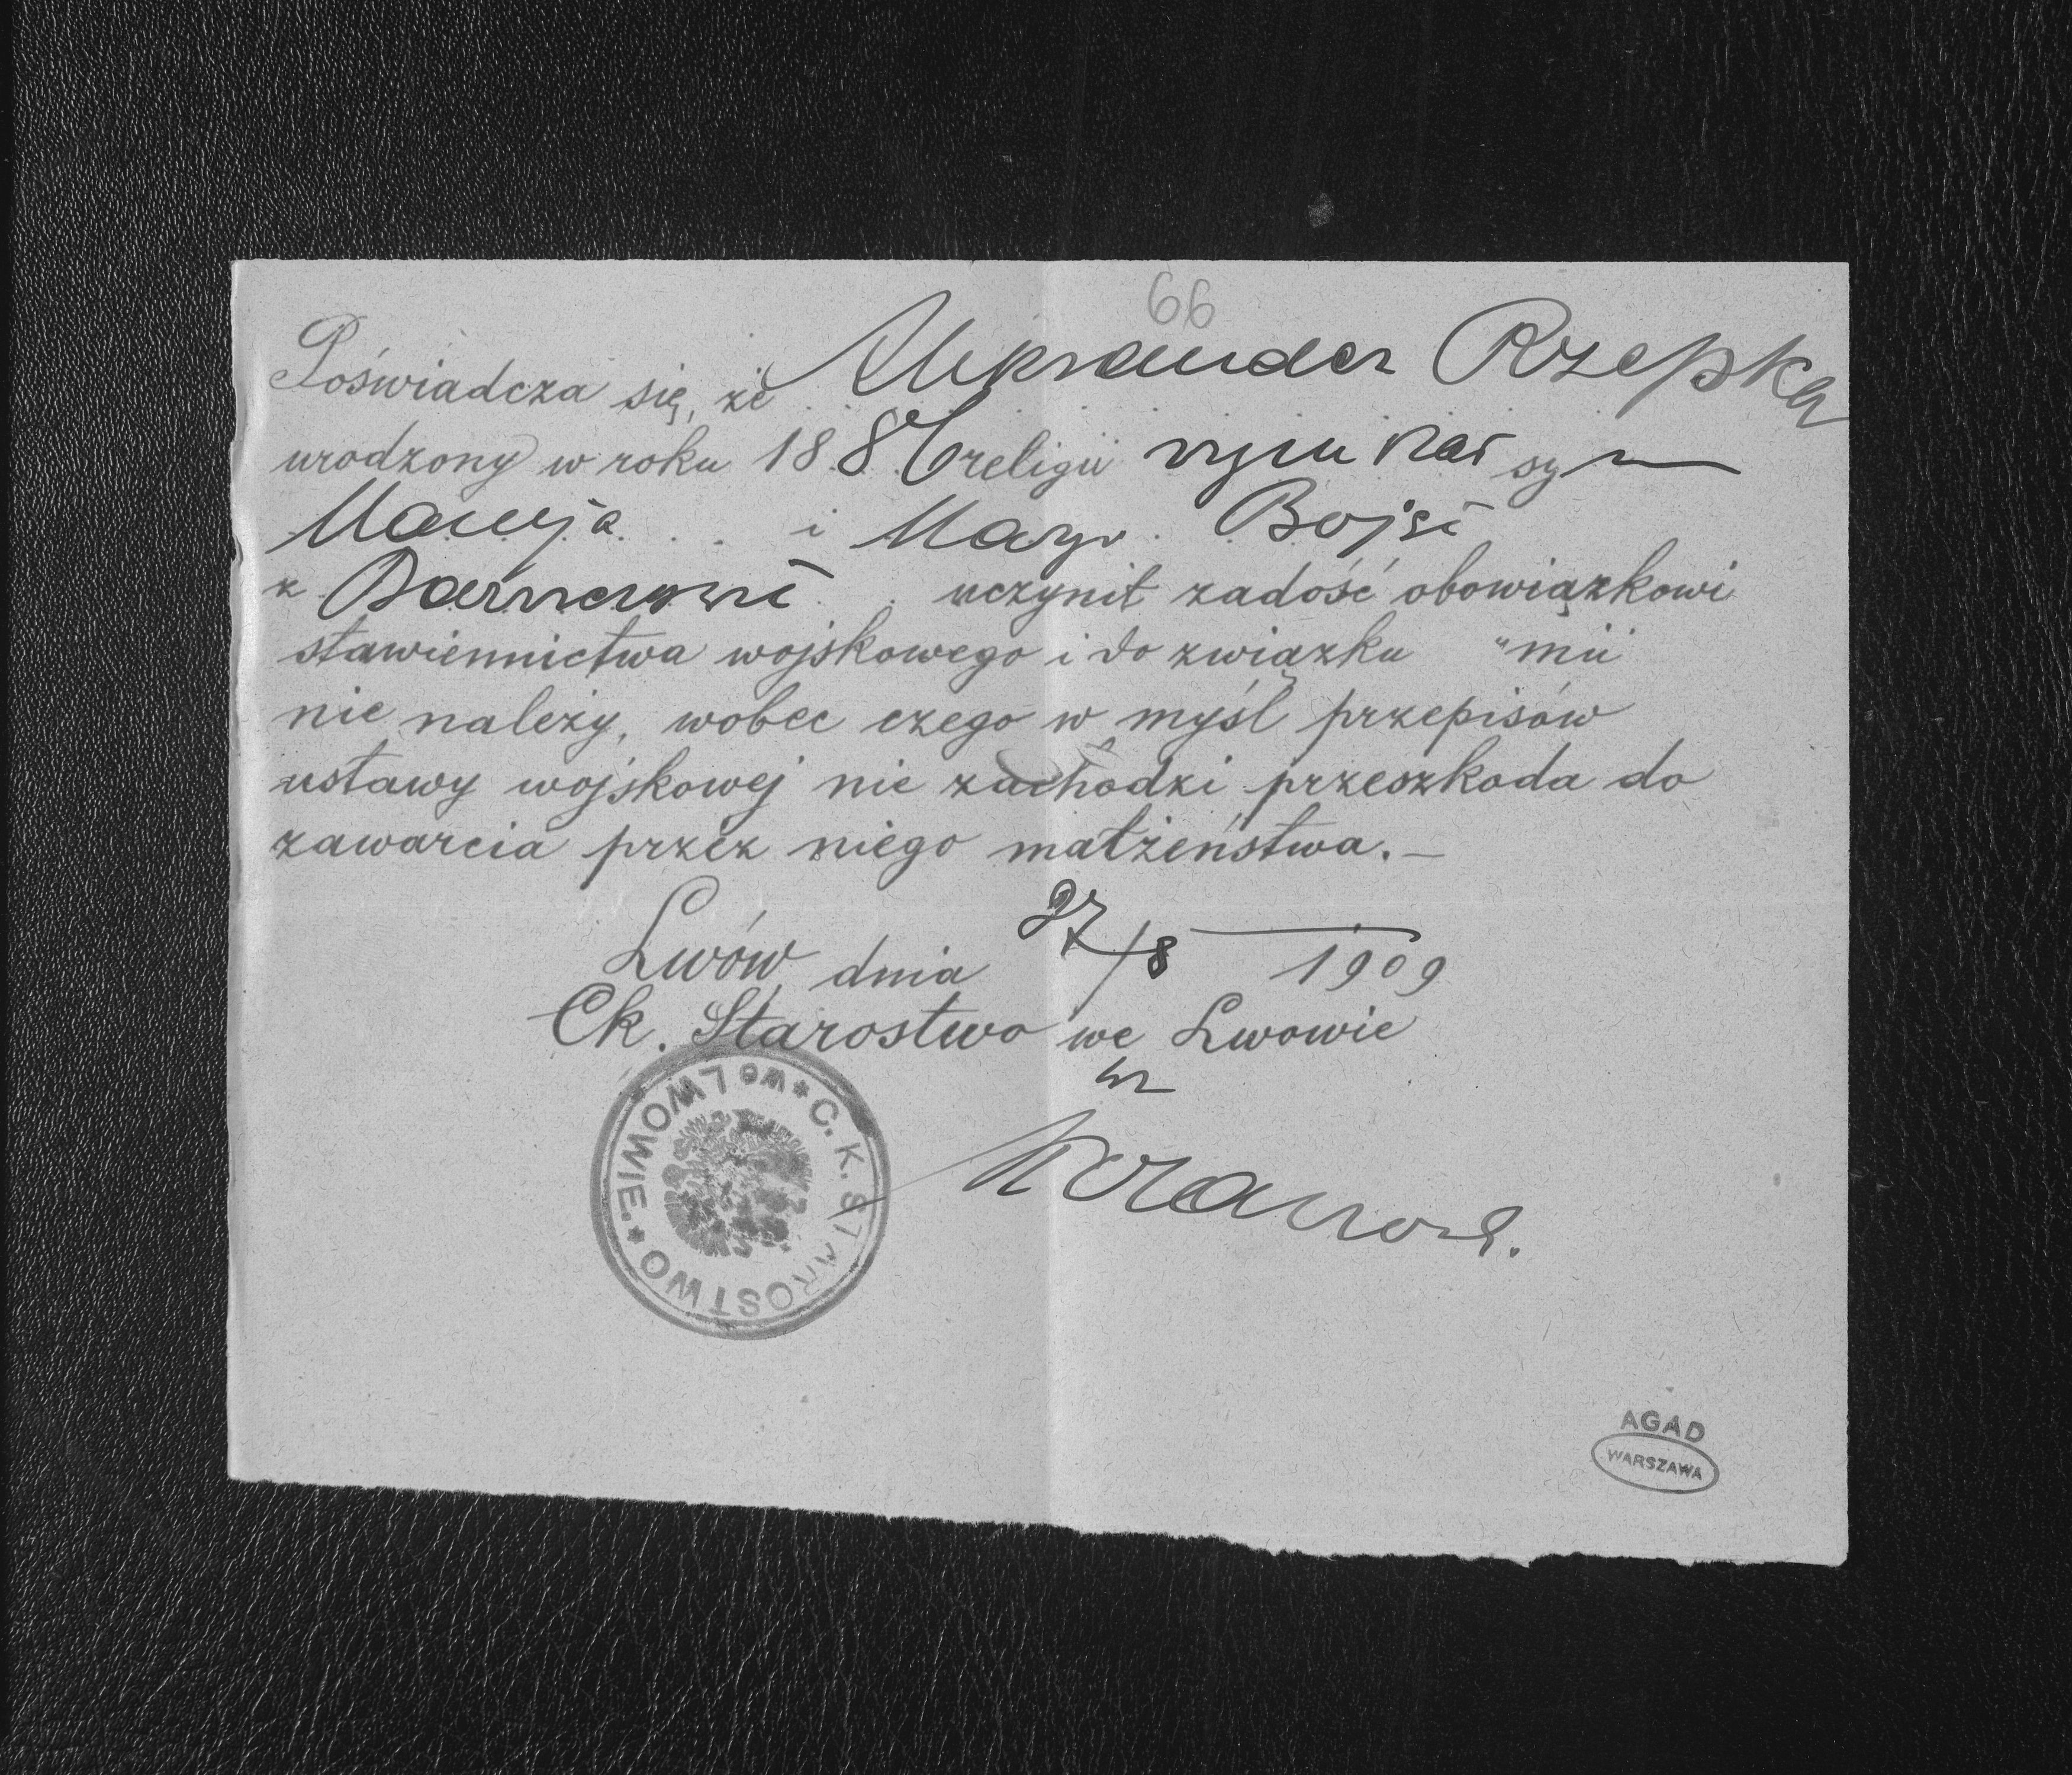 66
Poświadcza się, że Aleksander Rzepka
urodzony w roku 1886 religii rzym kat syn
Macieja i Mary
z uczynił zadość obowiązkowi
stawiennictwa wojskowego i do związku "mii
nie należy, wobec czego w myśl przepisów
ustawy wojskowej nie zachodzi przeszkoda do
zawarcia przez niego małżeństwa.—
Lwów dnia 27/8 1909
Ck. Starostwo we Lwowie
* C. K. STAROSTWO * we LWOWIE.
AGAD
WARSZAWA